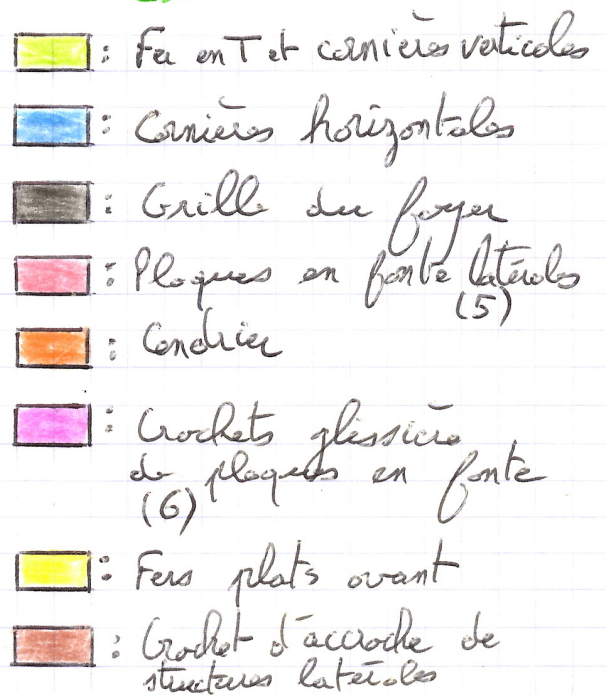 : Fer en T et cornières verticales
: Cornières horizontales
: Grille du foyer
: Plaques en fonte latérales
(5)
: Cendrier
: Crochets glissière
de plaques en fonte
(6)
: Fers plats avant
: Crochet d'accroche de
structures latérales